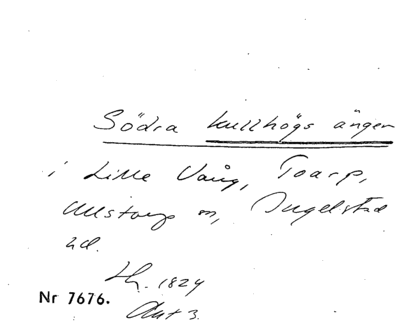 Södra kullhögs ängen
i Lille Vång, Toarp,
Ullstorp sn, Ingelstad
hd.
Lh. 1824
Akt 3.
Nr 7676.